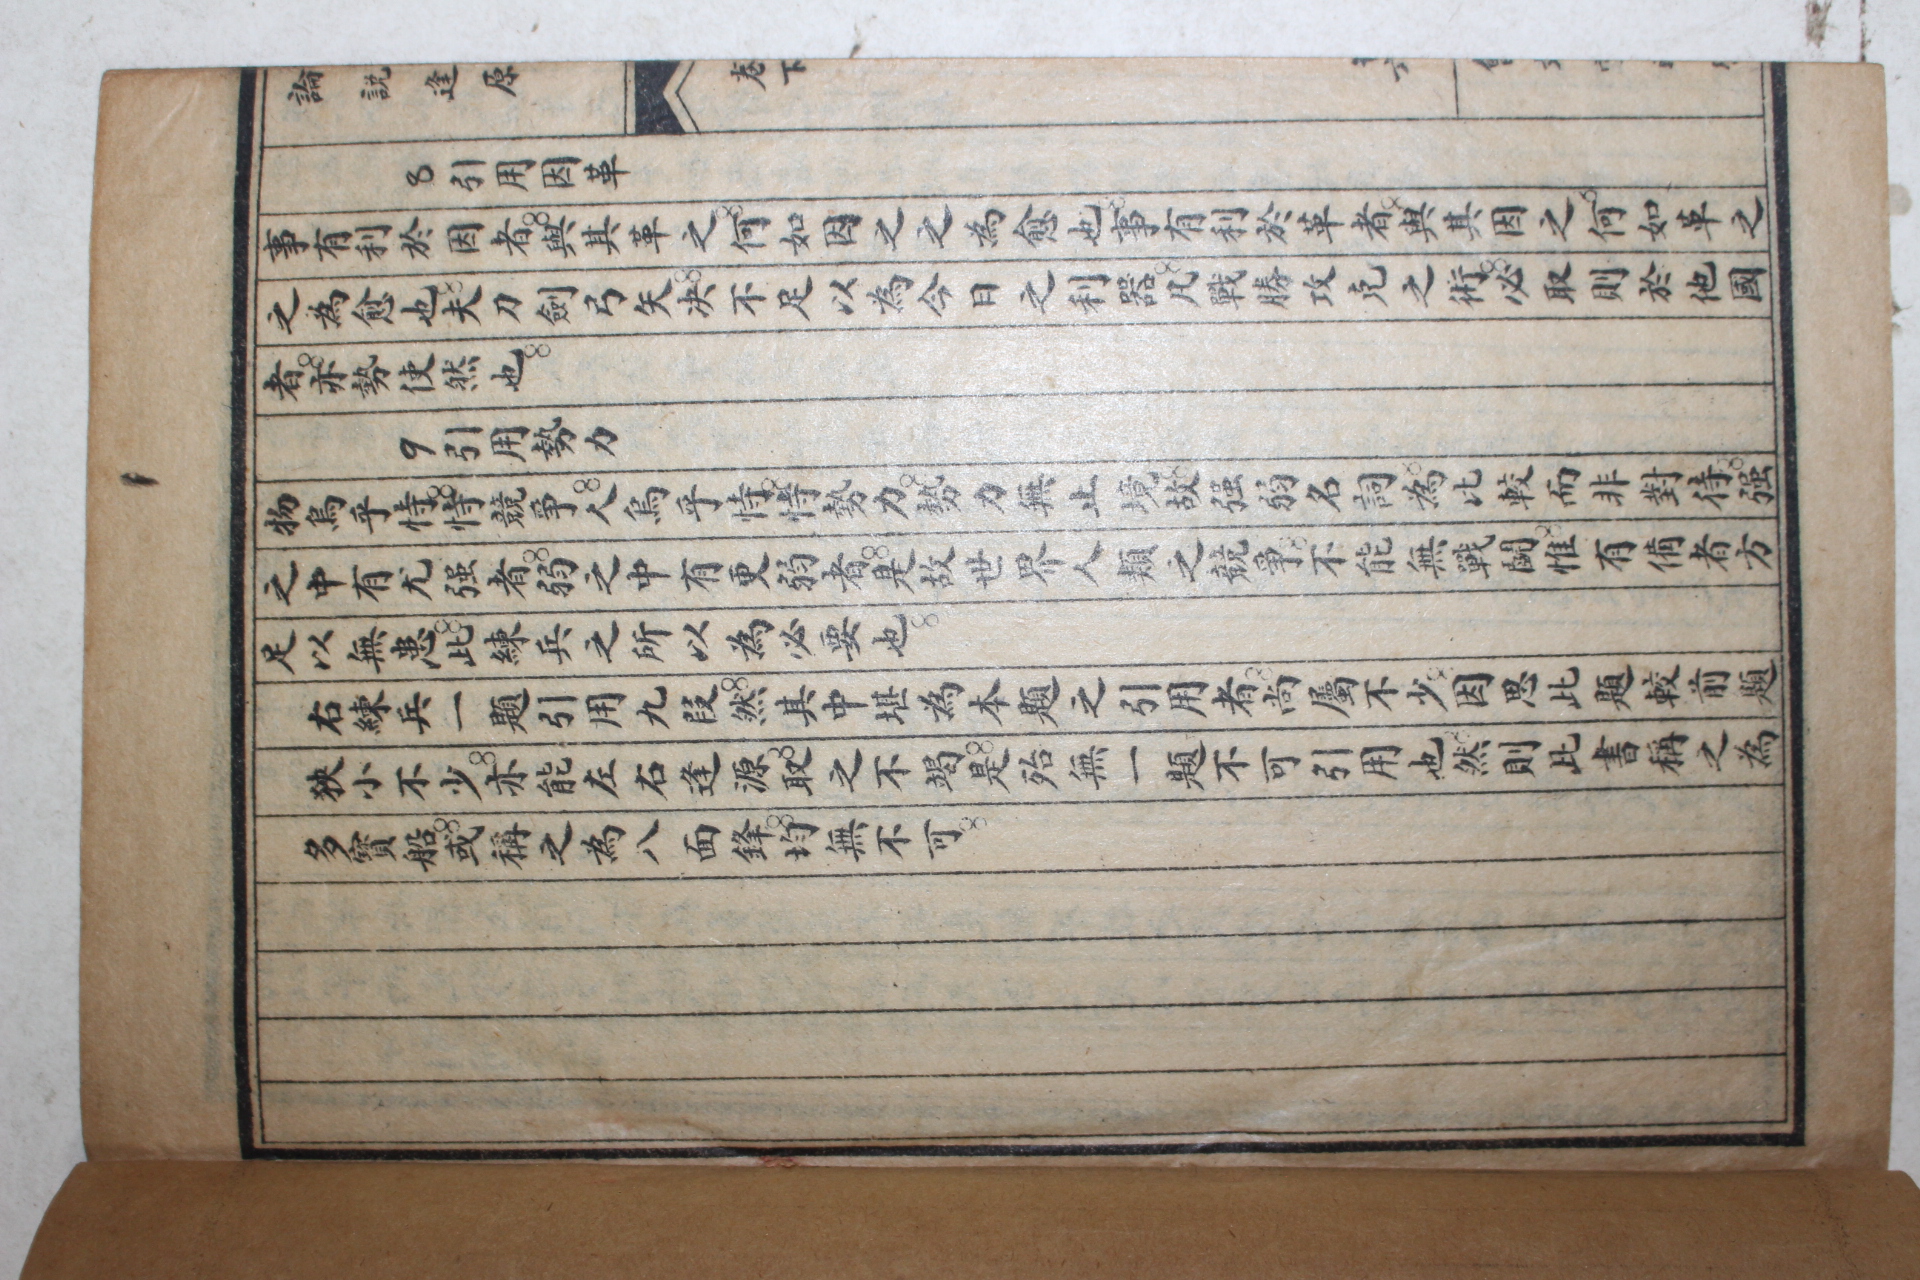 論說逢原
卷下
8引用因革
事有利於因者與其革之何如因之之為愈也事有利於革者與其因之何如革之
之為愈也夫刀劍弓矢決不足以為今日之利器凡戰勝攻克之術必取則於他國
者亦勢使然也
9引用勢力
物烏乎恃恃競爭人烏乎恃恃勢力勢力無止境故强弱名詞為比較而非對待强
之中有尤强者弱之中有更弱者是故世界人類之競爭不能無戰鬭惟有備者方
足以無患此練兵之所以為必要也
右練兵一題引用九段然其中堪為本題之引用者尚屬不少因思此題較前題
狹小不少亦能左右逢源取之不竭是殆無一題不可引用也然則此書稱之為
多寶船或稱之為八面鋒均無不可